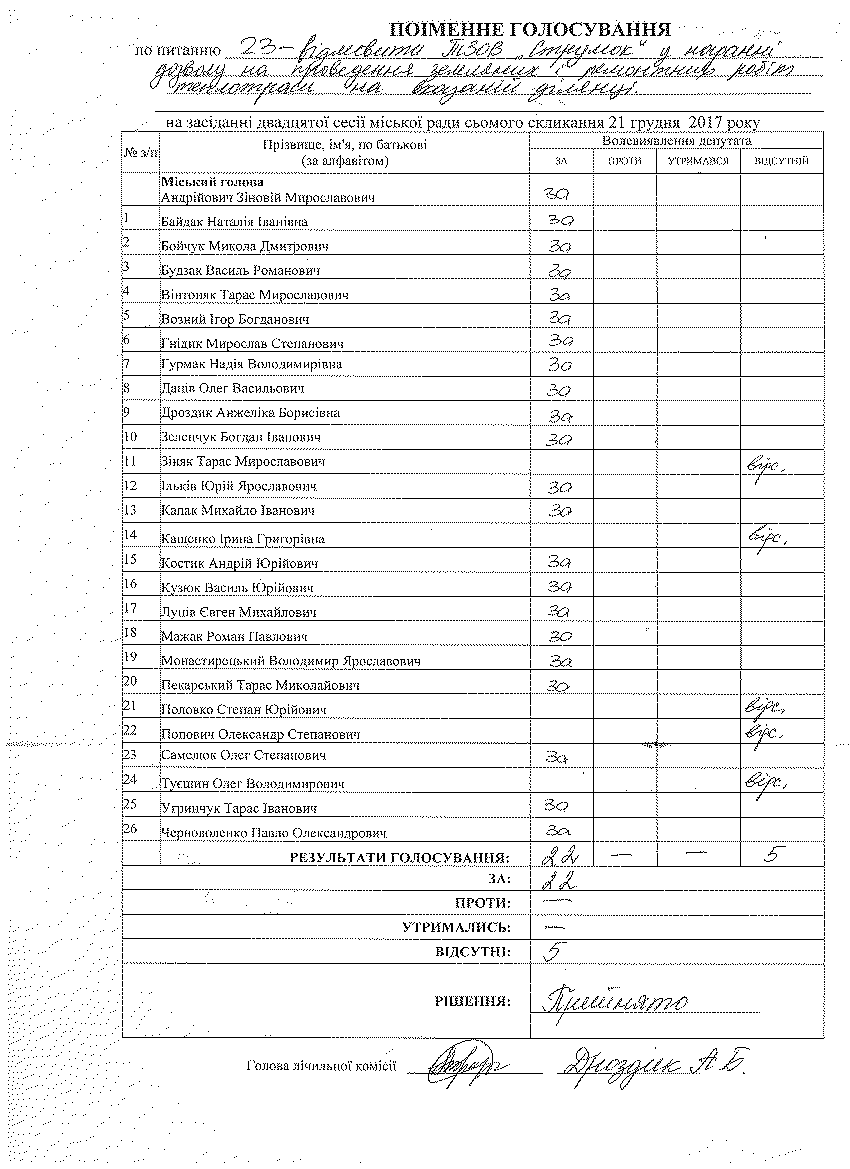 ПОІМЕННЕ ГОЛОСУВАННЯ
по питанню 23 – Відмовити ТзОВ „Струмок“ у наданні
дозволу на проведення земляних і ремонтних робіт
теплотраси на вказаній ділянці.
на засіданні двадцятої сесії міської ради сьомого скликання 21 грудня 2017 року
№ з/п Прізвище, ім'я, по батькові (за алфавітом) Волевиявлення депутата
ЗА ПРОТИ УТРИМАВСЯ ВІДСУТНІЙ
Міський голова
Андрійович Зіновій Мирославович за
1 Байдак Наталія Іванівна за
2 Бойчук Микола Дмитрович за
3 Будзак Василь Романович за
4 Вінтоняк Тарас Мирославович за
5 Возний Ігор Богданович за
6 Гнідик Мирослав Степанович за
7 Гурмак Надія Володимирівна за
8 Даців Олег Васильович за
9 Дроздик Анжеліка Борисівна за
10 Зеленчук Богдан Іванович за
11 Зіняк Тарас Мирославович відс.
12 Ільків Юрій Ярославович за
13 Капак Михайло Іванович за
14 Кащенко Ірина Григорівна відс.
15 Костик Андрій Юрійович за
16 Кузюк Василь Юрійович за
17 Луців Євген Михайлович за
18 Мажак Роман Павлович за
19 Монастирецький Володимир Ярославович за
20 Пекарський Тарас Миколайович за
21 Половко Степан Юрійович відс.
22 Попович Олександр Степанович відс.
23 Самелюк Олег Степанович за
24 Туєшин Олег Володимирович відс.
25 Угринчук Тарас Іванович за
26 Черноволенко Павло Олександрович за
РЕЗУЛЬТАТИ ГОЛОСУВАННЯ: 22 — — 5
ЗА: 22
ПРОТИ: —
УТРИМАЛИСЬ: —
ВІДСУТНІ: 5
РІШЕННЯ: Прийнято
Голова лічильної комісії Дроздик А.Б.